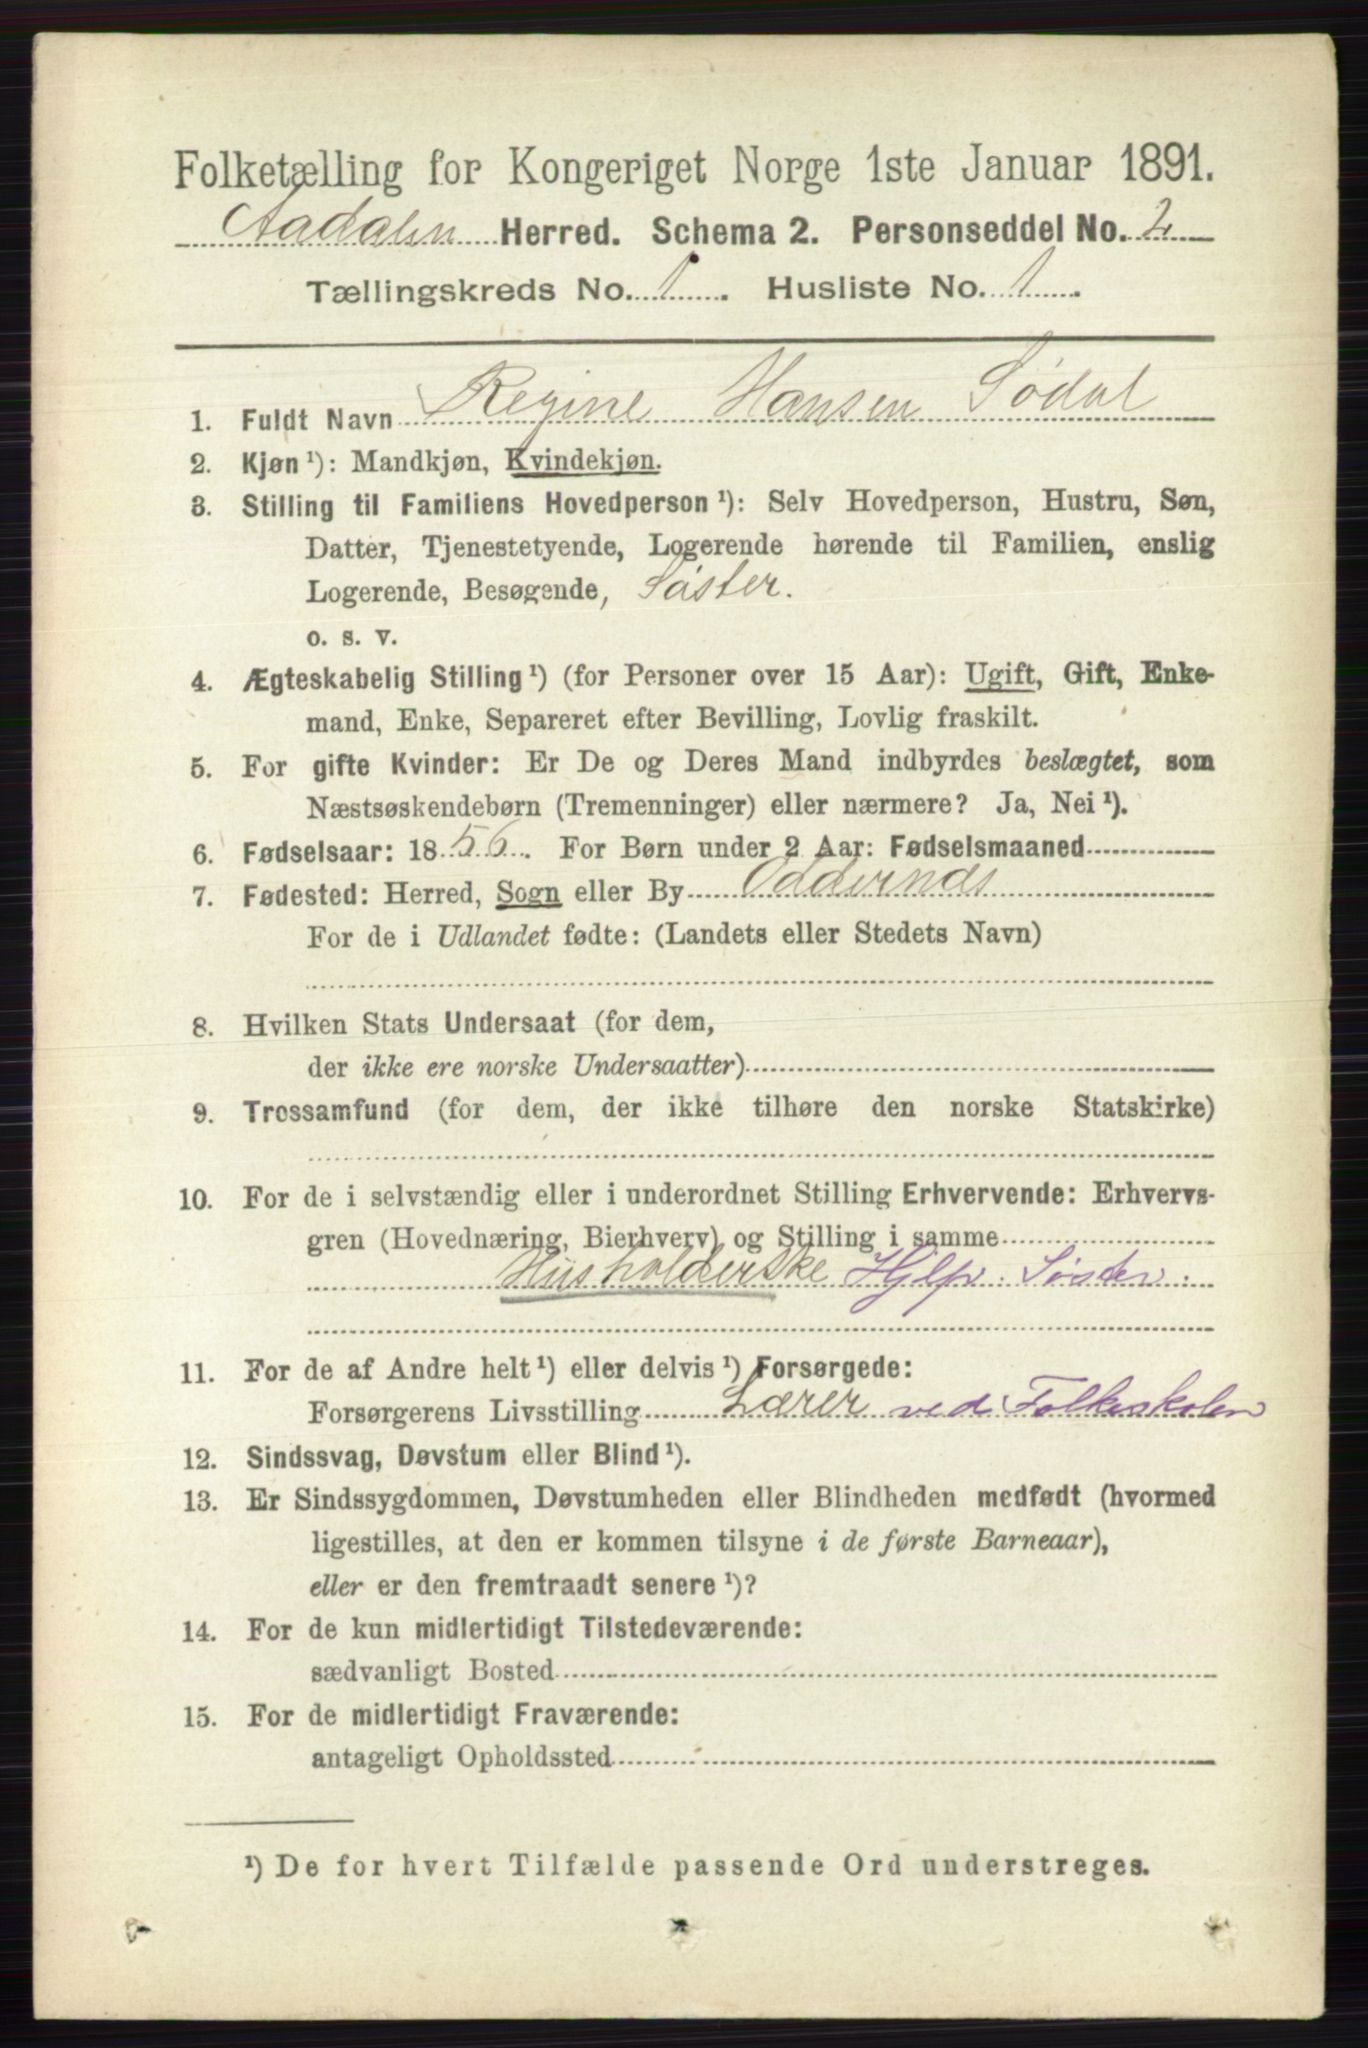 Folketælling for Kongeriget Norge 1ste Januar 1891.
Aadalen Herred. Schema 2. Personseddel No. 2
Tællingskreds No. 1. Husliste No. 1.
1. Fuldt Navn Regine Hansen Sødal
2. Kjøn ¹): Mandkjøn, Kvindekjøn.
3. Stilling til Familiens Hovedperson ¹): Selv Hovedperson, Hustru, Søn,
Datter, Tjenestetyende, Logerende hørende til Familien, enslig
Logerende, Besøgende, Søster.
o. s. v.
4. Ægteskabelig Stilling ¹) (for Personer over 15 Aar): Ugift, Gift, Enke-
mand, Enke, Separeret efter Bevilling, Lovlig fraskilt.
5. For gifte Kvinder: Er De og Deres Mand indbyrdes beslægtet, som
Næstsøskendebørn (Tremenninger) eller nærmere? Ja, Nei ¹).
6. Fødselsaar: 1856. For Børn under 2 Aar: Fødselsmaaned
7. Fødested: Herred, Sogn eller By Oddernds
For de i Udlandet fødte: (Landets eller Stedets Navn)
8. Hvilken Stats Undersaat (for dem,
der ikke ere norske Undersaatter)
9. Trossamfund (for dem, der ikke tilhøre den norske Statskirke)
10. For de i selvstændig eller i underordnet Stilling Erhvervende: Erhvervs-
gren (Hovednæring, Bierhverv) og Stilling i samme
Husholderske Hjlp. Søster.
11. For de af Andre helt ¹) eller delvis ¹) Forsørgede:
Forsørgerens Livsstilling Lærer ved Folkeskolen
12. Sindssvag, Døvstum eller Blind ¹).
13. Er Sindssygdommen, Døvstumheden eller Blindheden medfødt (hvormed
ligestilles, at den er kommen tilsyne i de første Barneaar),
eller er den fremtraadt senere ¹)?
14. For de kun midlertidigt Tilstedeværende:
sædvanligt Bosted
15. For de midlertidigt Fraværende:
antageligt Opholdssted
¹) De for hvert Tilfælde passende Ord understreges.